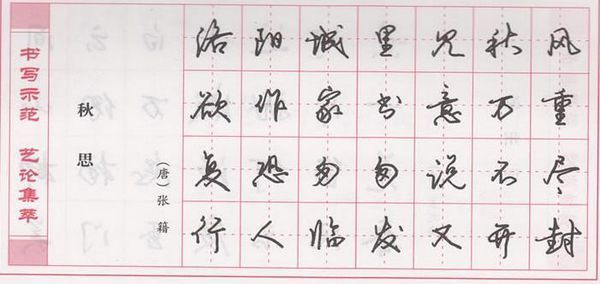 书写示范 艺论集萃
秋思
（唐）张籍
洛阳城里见秋风
欲作家书意万重
复恐匆匆说不尽
行人临发又开封